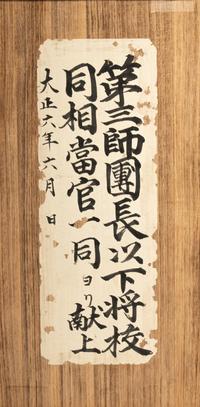 第三師團長以下将校
同相當官一同ヨリ献上
大正六年六月　日